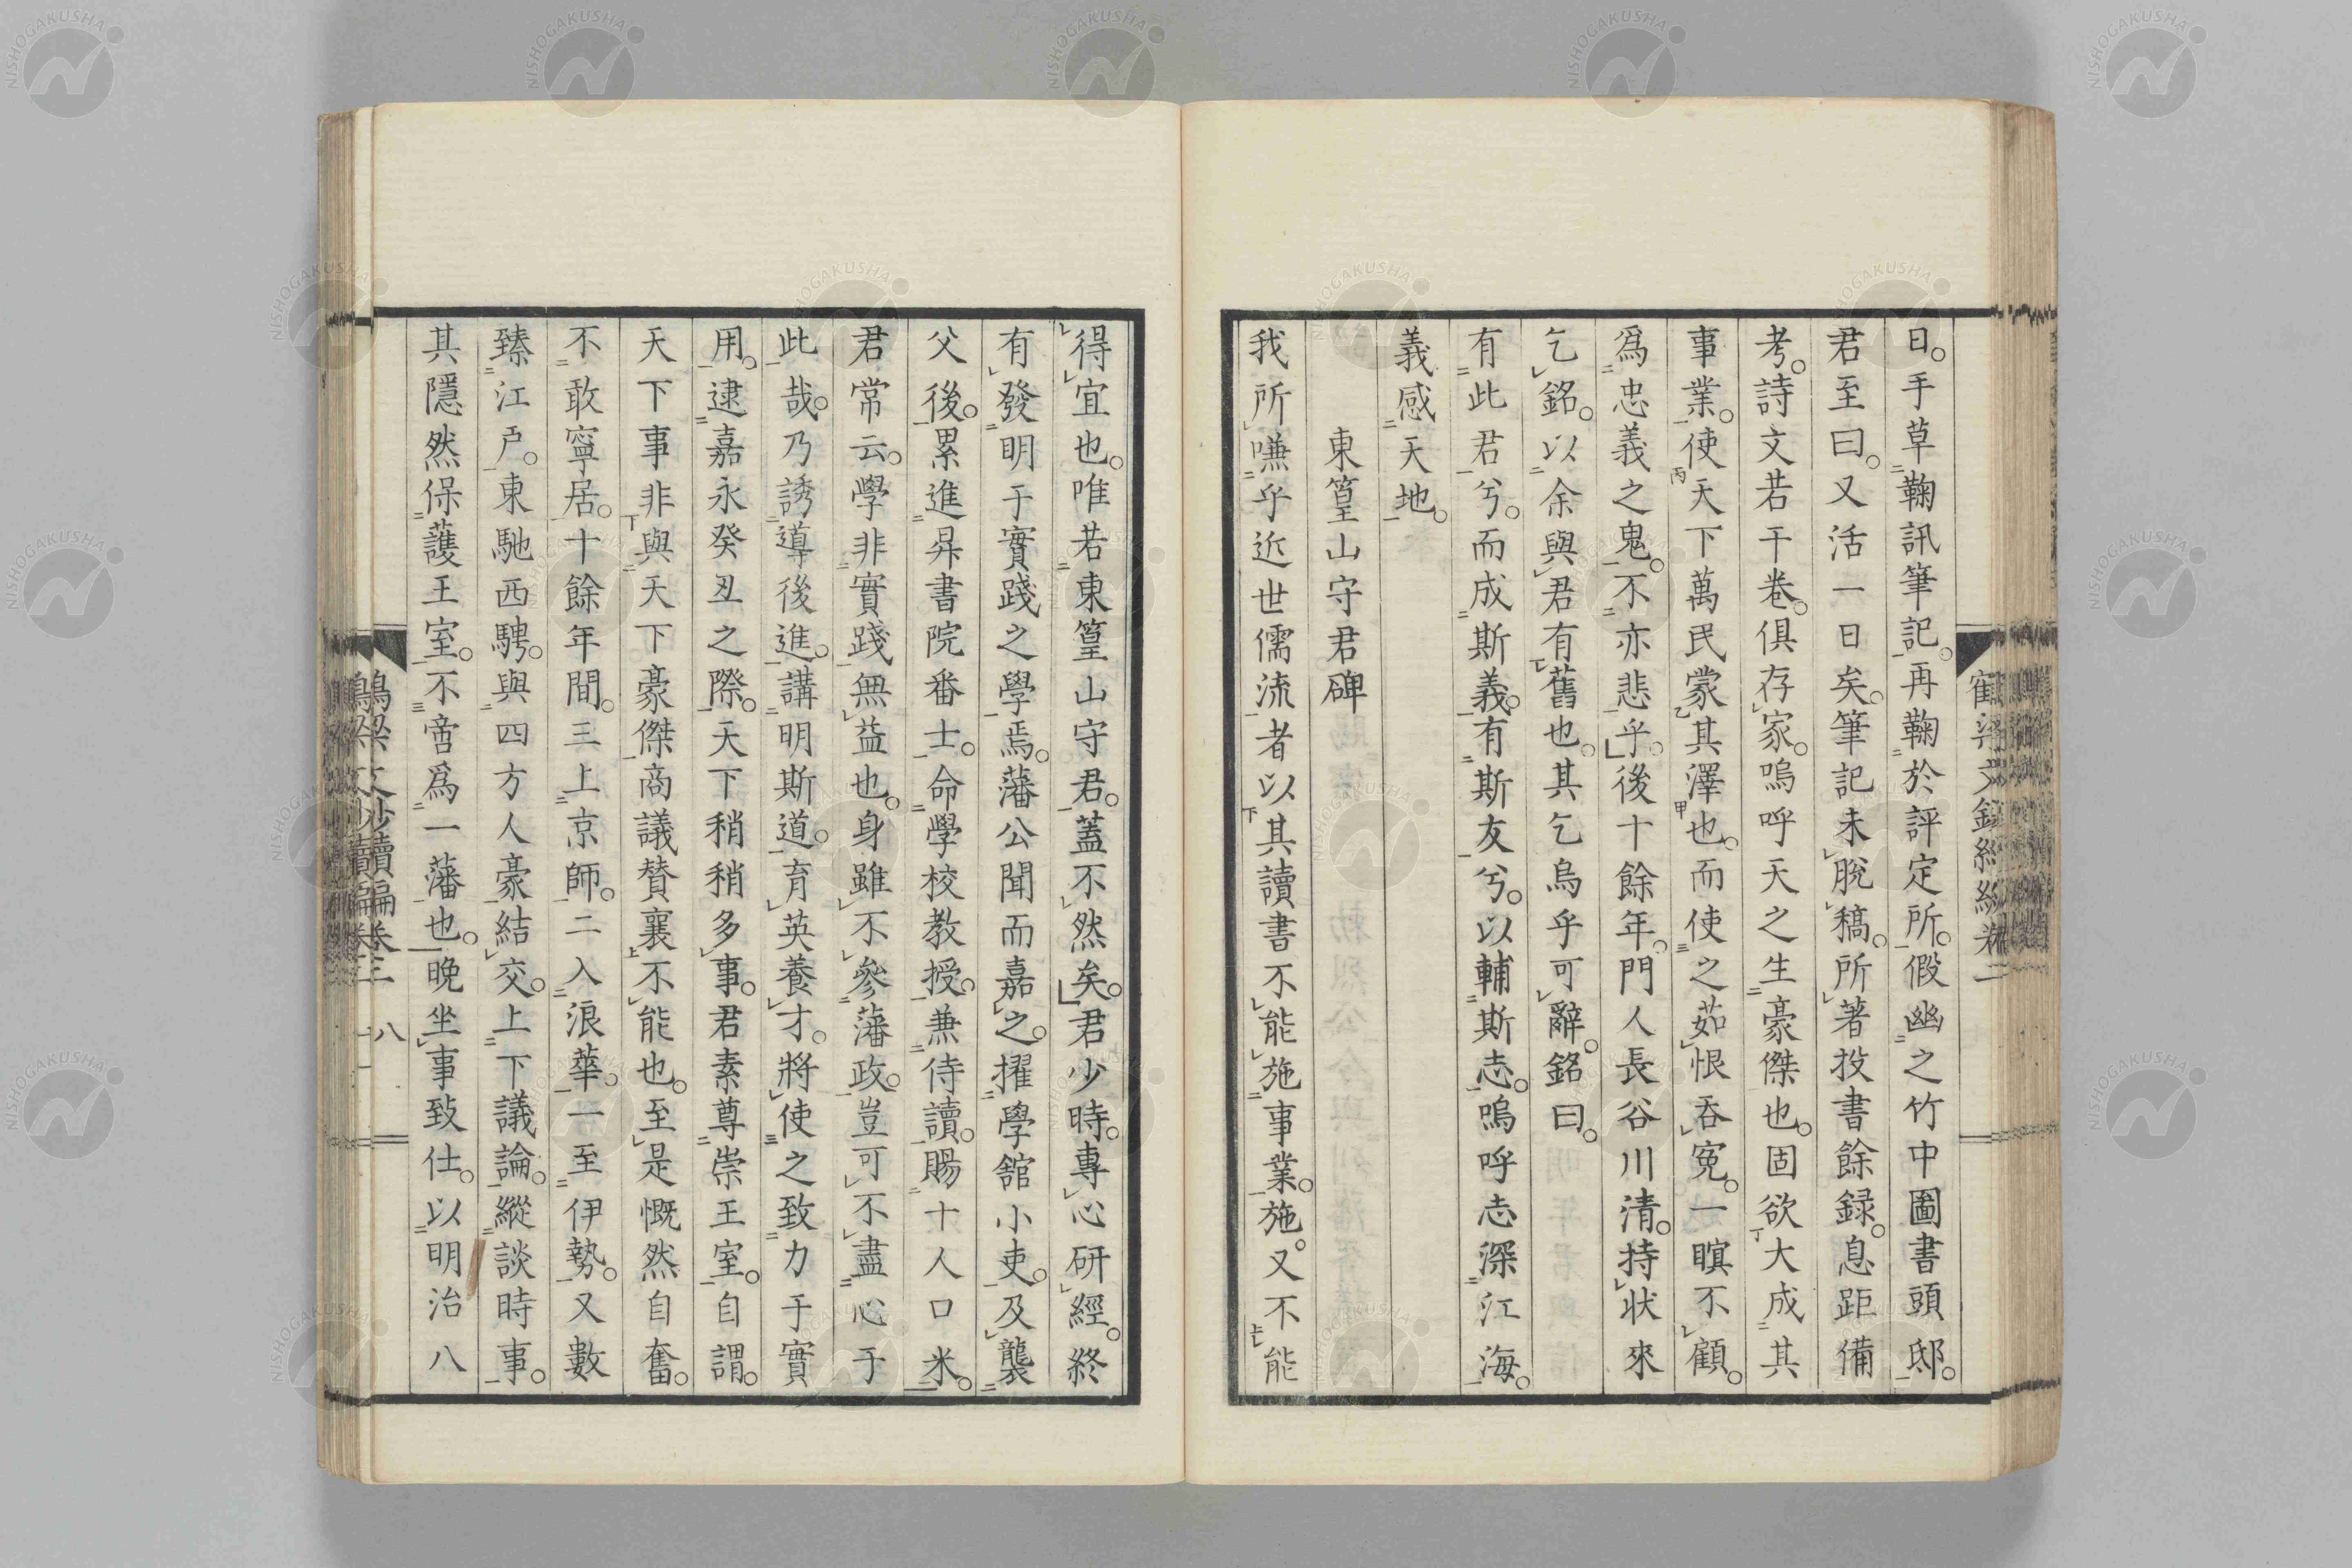 日。手草鞠訊筆記。再鞠於評定所。假幽之竹中圖書頭邸。
君至曰。又活一日矣。筆記未脫稿。所著投書餘録。息距備
考。詩文若干卷。俱存家。嗚呼天之生豪傑也。固欲大成其
事業。使天下萬民蒙其澤也。而使之茹恨吞寃。一瞑不顧。
爲忠義之鬼。不亦悲乎。後十餘年。門人長谷川清。持狀來
乞銘。以余與君有舊也。其乞烏乎可辭。銘曰。
有此君兮。而成斯義。有斯友兮。以輔斯志。嗚呼志深江海。
義感天地。
東篁山守君碑
我所嗛乎近世儒流者以其讀書不能施事業。施。又不能
得宜也。唯若東篁山守君。蓋不然矣。君少時。專心研經。終
有發明于實踐之學焉。藩公聞而嘉之。擢學舘小吏。及襲
父後。累進昇書院番士。命學校教授。兼侍讀。賜十人口米。
君常云。學非實踐無益也。身雖不參藩政。豈可不盡心于
此哉。乃誘導後進。講明斯道。育英養才。將使之致力于實
用。逮嘉永癸丑之際。天下稍稍多事。君素尊崇王室。自謂。
天下事非與天下豪傑商議贊襄不能也。至是慨然自奮。
不敢寧居。十餘年間。三上京師。二入浪華。一至伊勢。又數
臻江戶。東馳西騁。與四方人豪結交。上下議論。縱談時事。
其隱然保護王室。不啻爲一藩也。晩坐事致仕。以明治八
文鈔續編卷三 八